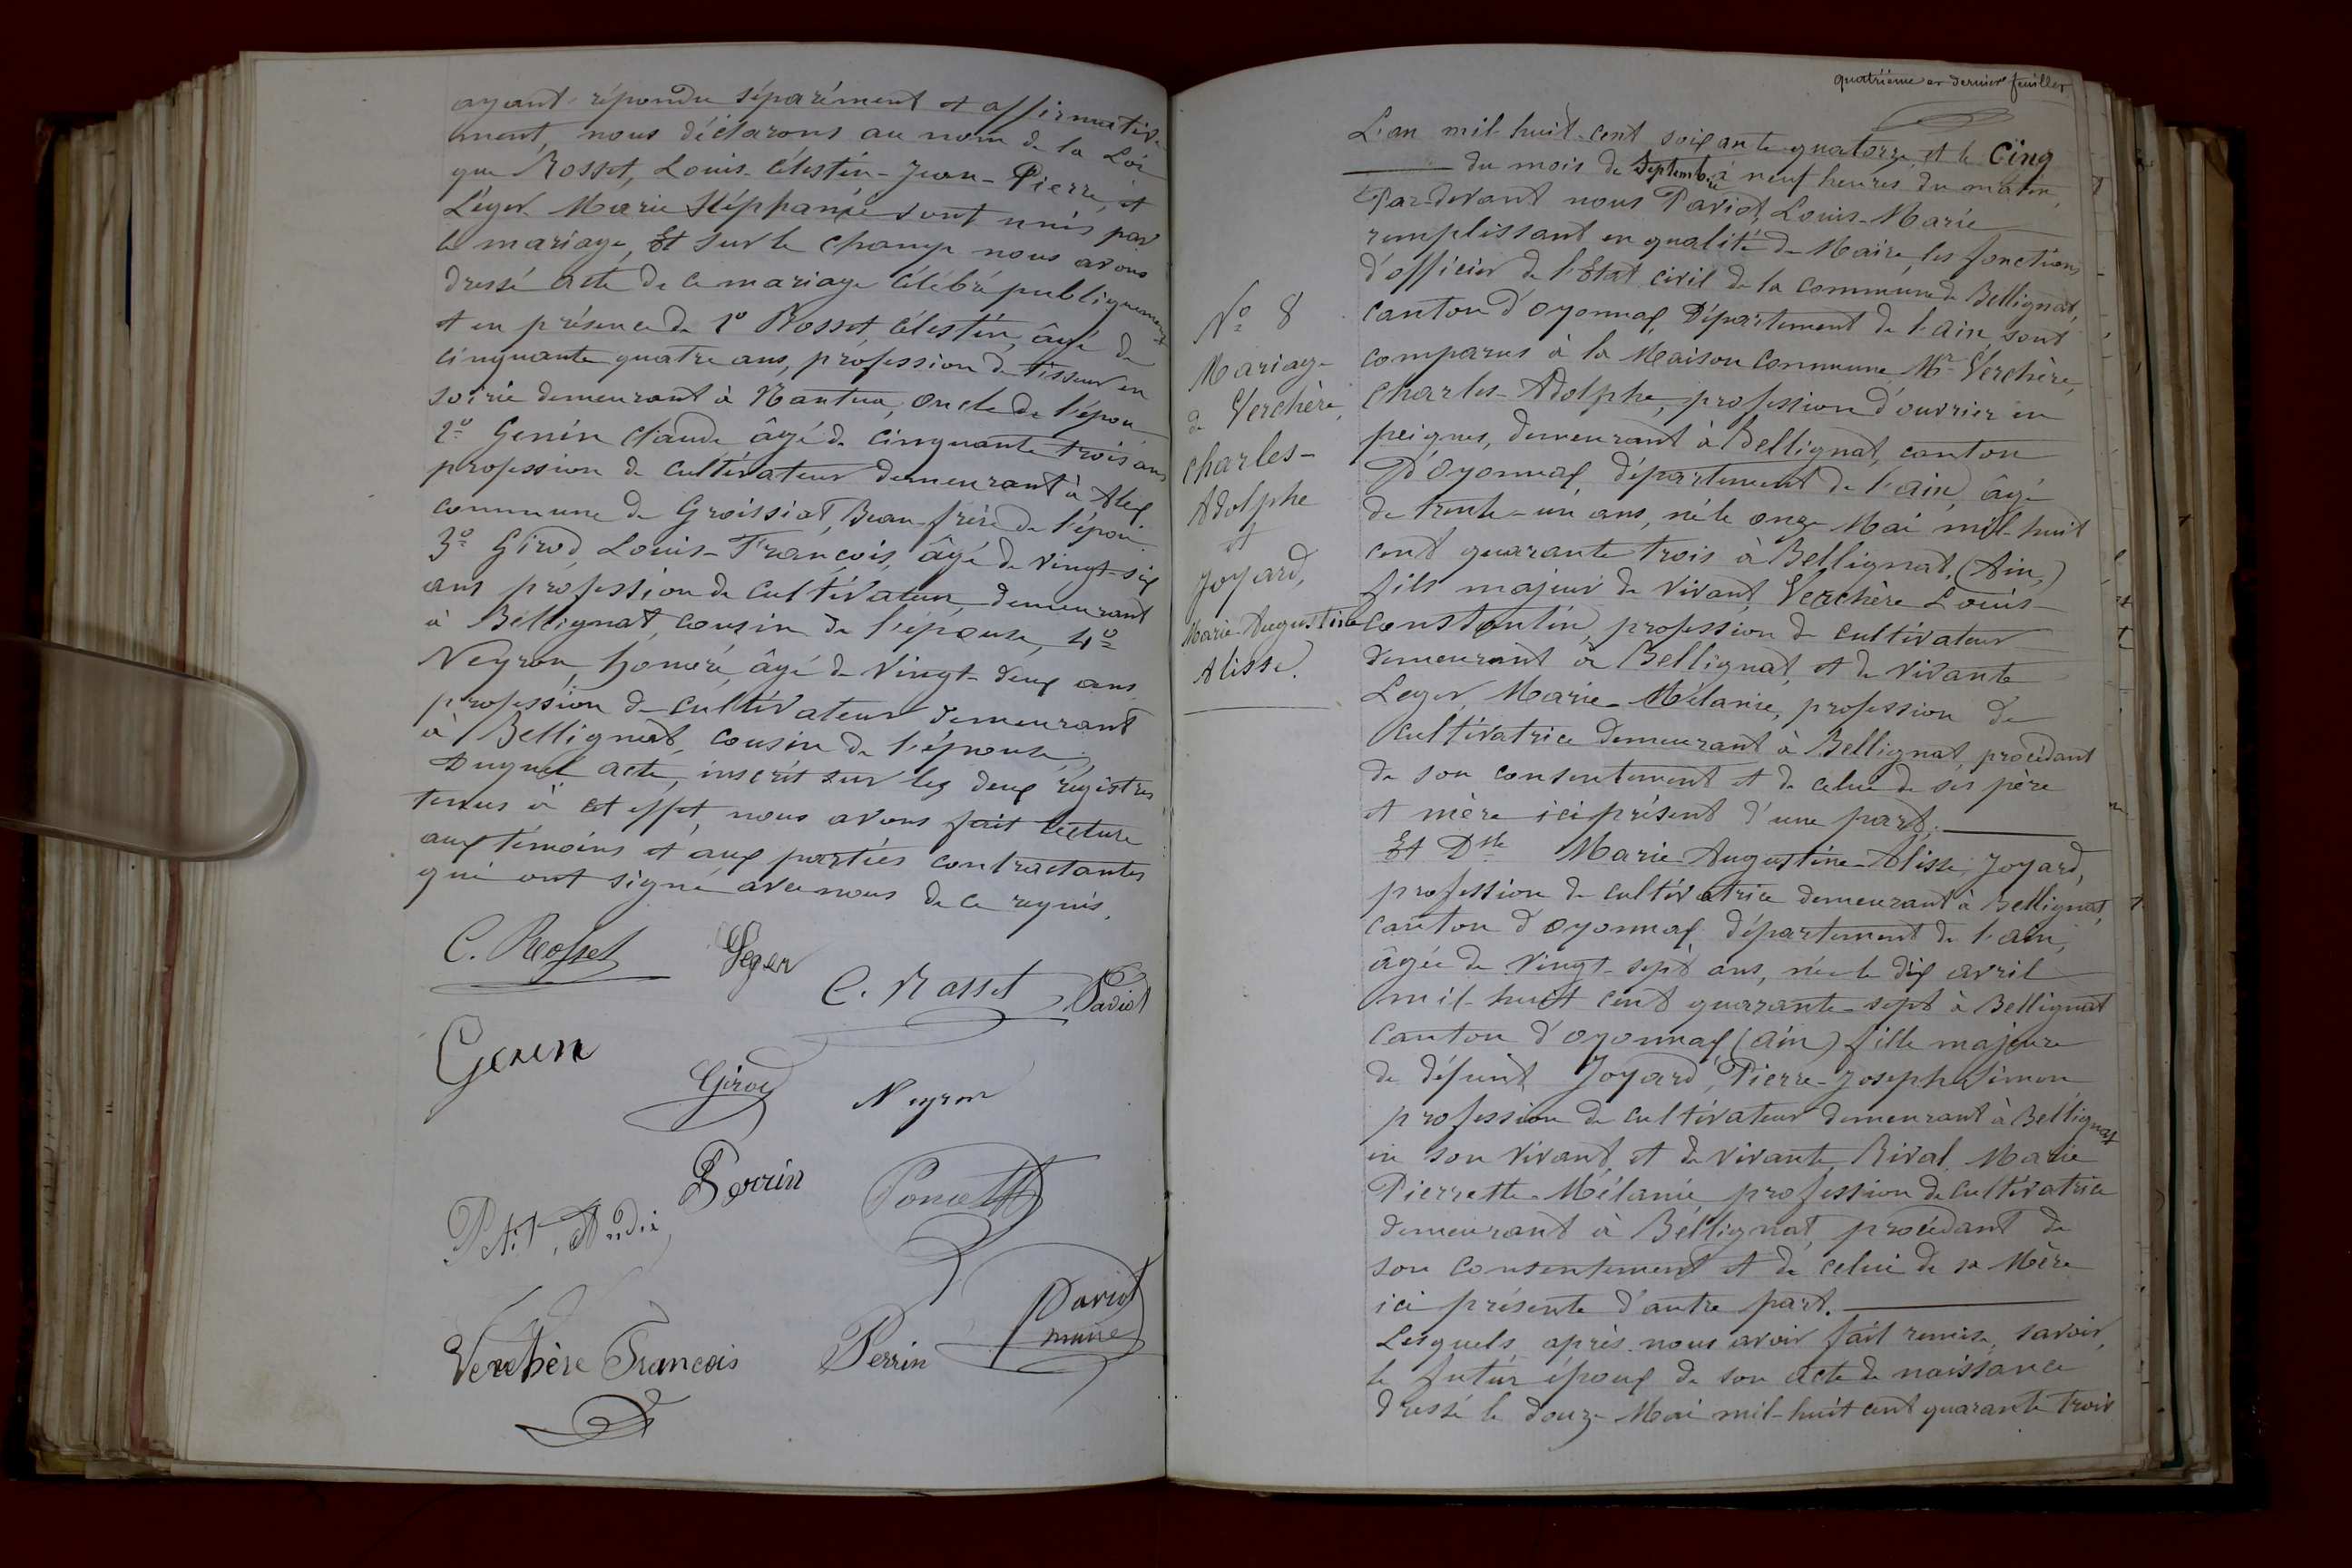 ayant répondu séparément et affirmative
ment, nous déclarons au nom de la Loi
que Rosset, Louis-Célestin-Jean-Pierre, et
Léger Marie Stéphanie sont unis par
le mariage, Et sur le champ nous avons
dressé acte de ce mariage célébré publiquement
et en présence de 1º Rosset, Célestin, âgé de
cinquante quatre ans, profession de tisseur en
soirie demeurant à Nantua, oncle de l'épou
2º Genin Claude âgé de cinquante trois ans
profession de cultivateur demeurant à Alex
commune de Groissiat, Beau-frère de l'épou.
3º Girod, Louis-François, âgé de vingt-six
ans profession de cultivateur, demeurant
à Bellignat, cousin de l'épouse, 4º
Neyron, honoré, âgé de vingt-deux ans
profession de cultivateur demeurant
à Bellignat, cousin de l'épouse,
Duquel acte, inscrit sur les deux régistres,
tenus à cet effet, nous avons fait lecture
aux témoins et aux parties contractantes
qui ont signé avec nous de ce requis.
C. Rosset Léger C. Rosset Paviot
Genin Girod Neyron
Perrin Poncet
Verchère François Perrin Paviot
maire
quatrième et dernier feuillet
L'an mil-huit-cent soixante-quatorze, et le Cinq
du mois de Septembre à neuf heures du matin,
Par-devant nous Paviot, Louis-Marie
remplissant en qualité de Maire, les fonctions
d'officier de l'Etat civil de la commune de Bellignat,
canton d'Oyonnax, Département de l'ain, sont
comparus à la Maison commune, Mr Verchère,
Charles-Adolphe, profession d'ouvrier en
peignes, demeurant à Bellignat, canton
D'Oyonnax, département de l'ain, âgé
de trente-un ans, né le onze Mai mil-huit
cent quarante trois à Bellignat, (Ain,)
fils majeur de vivant, Verchère Louis-
Constantin, profession de cultivateur
demeurant à Bellignat, et de vivante
Leger, Marie-Mélanie, profession de
cultivatrice demeurant à Bellignat, procédant
de son consentement et de celui de ses père
et mère ici présent d'une part.
Et Dlle Marie-Augustine-Alisse, Joyard,
profession de cultivatrice demeurant à Bellignat,
canton d'Oyonnax, département de l'ain,
âgée de vingt-sept ans, née le dix avril
mil-huit cent quarante-sept à Bellignat
canton d'Oyonnax (ain) fille majeure
de défunt Joyard, Pierre-Joseph Simon
profession de cultivateur demeurant à Bellignat
en son vivant, et de vivante, Rival, Marie
Pierrette-Mélanie profession de cultivatrice
demeurant à Bellignat, procédant de
son consentement et de celui de sa Mère
ici présente d'autre part.
Lesquels, après nous avoir fait remise, savoir,
le futur époux de son acte de naissance
dressé le douze Mai mil-huit cent quarante trois
Nº 8
Mariage
de Verchère,
Charles-
Adolphe
et
Joyard,
Marie-Augustine
Alisse.